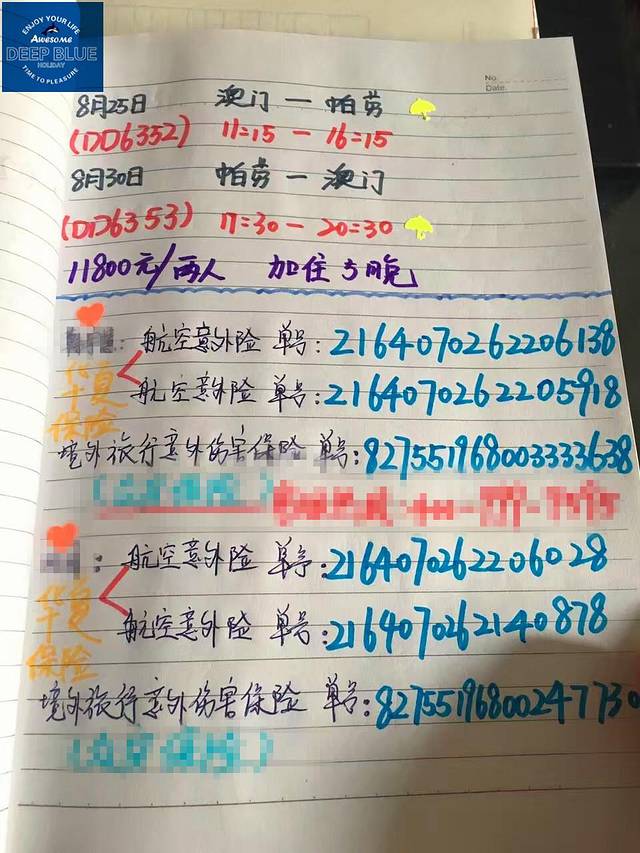 ENJOY YOUR LIFE
Awesome
DEEP BLUE
HOLIDAY
TIME TO PLEASURE
No.
Date.
8月25日 澳门 — 帕劳
(DD6352) 11:15 - 16:15
8月30日 帕劳 — 澳门
(DD6353) 17:30 - 20:30
11800元/两人 加住5晚
: 航空意外险 单号: 2164070262206138
华夏保险
航空意外险 单号: 2164070262205918
境外旅行意外伤害保险 单号: 827551968003333638
: 航空意外险 单号: 2164070262206028
华夏保险
航空意外险 单号: 2164070262140878
境外旅行意外伤害保险 单号: 82755196800247730